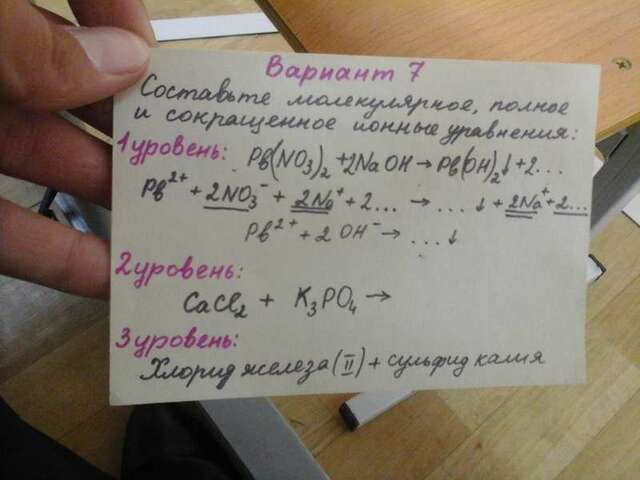 Вариант 7
Составьте молекулярное, полное
и сокращенное ионные уравнения:
1 уровень: Pb(NO₃)₂ + 2NaOH → Pb(OH)₂↓ + 2...
Pb²⁺ + 2NO₃⁻ + 2Na⁺ + 2... → ...↓ + 2Na⁺ + 2...
Pb²⁺ + 2OH⁻ → ...↓
2 уровень:
CaCl₂ + K₃PO₄ →
3 уровень:
Хлорид железа (II) + сульфид калия